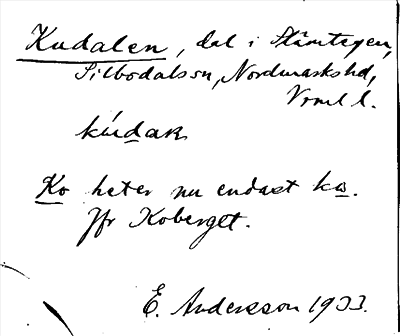 Kudalen, dal i Stämtegen,
Silbodals sn, Nordmarks hd,
Vrml l.
kúdaɴ
Ko heter nu endast kω.
Jfr Koberget.
E. Andersson 1933.